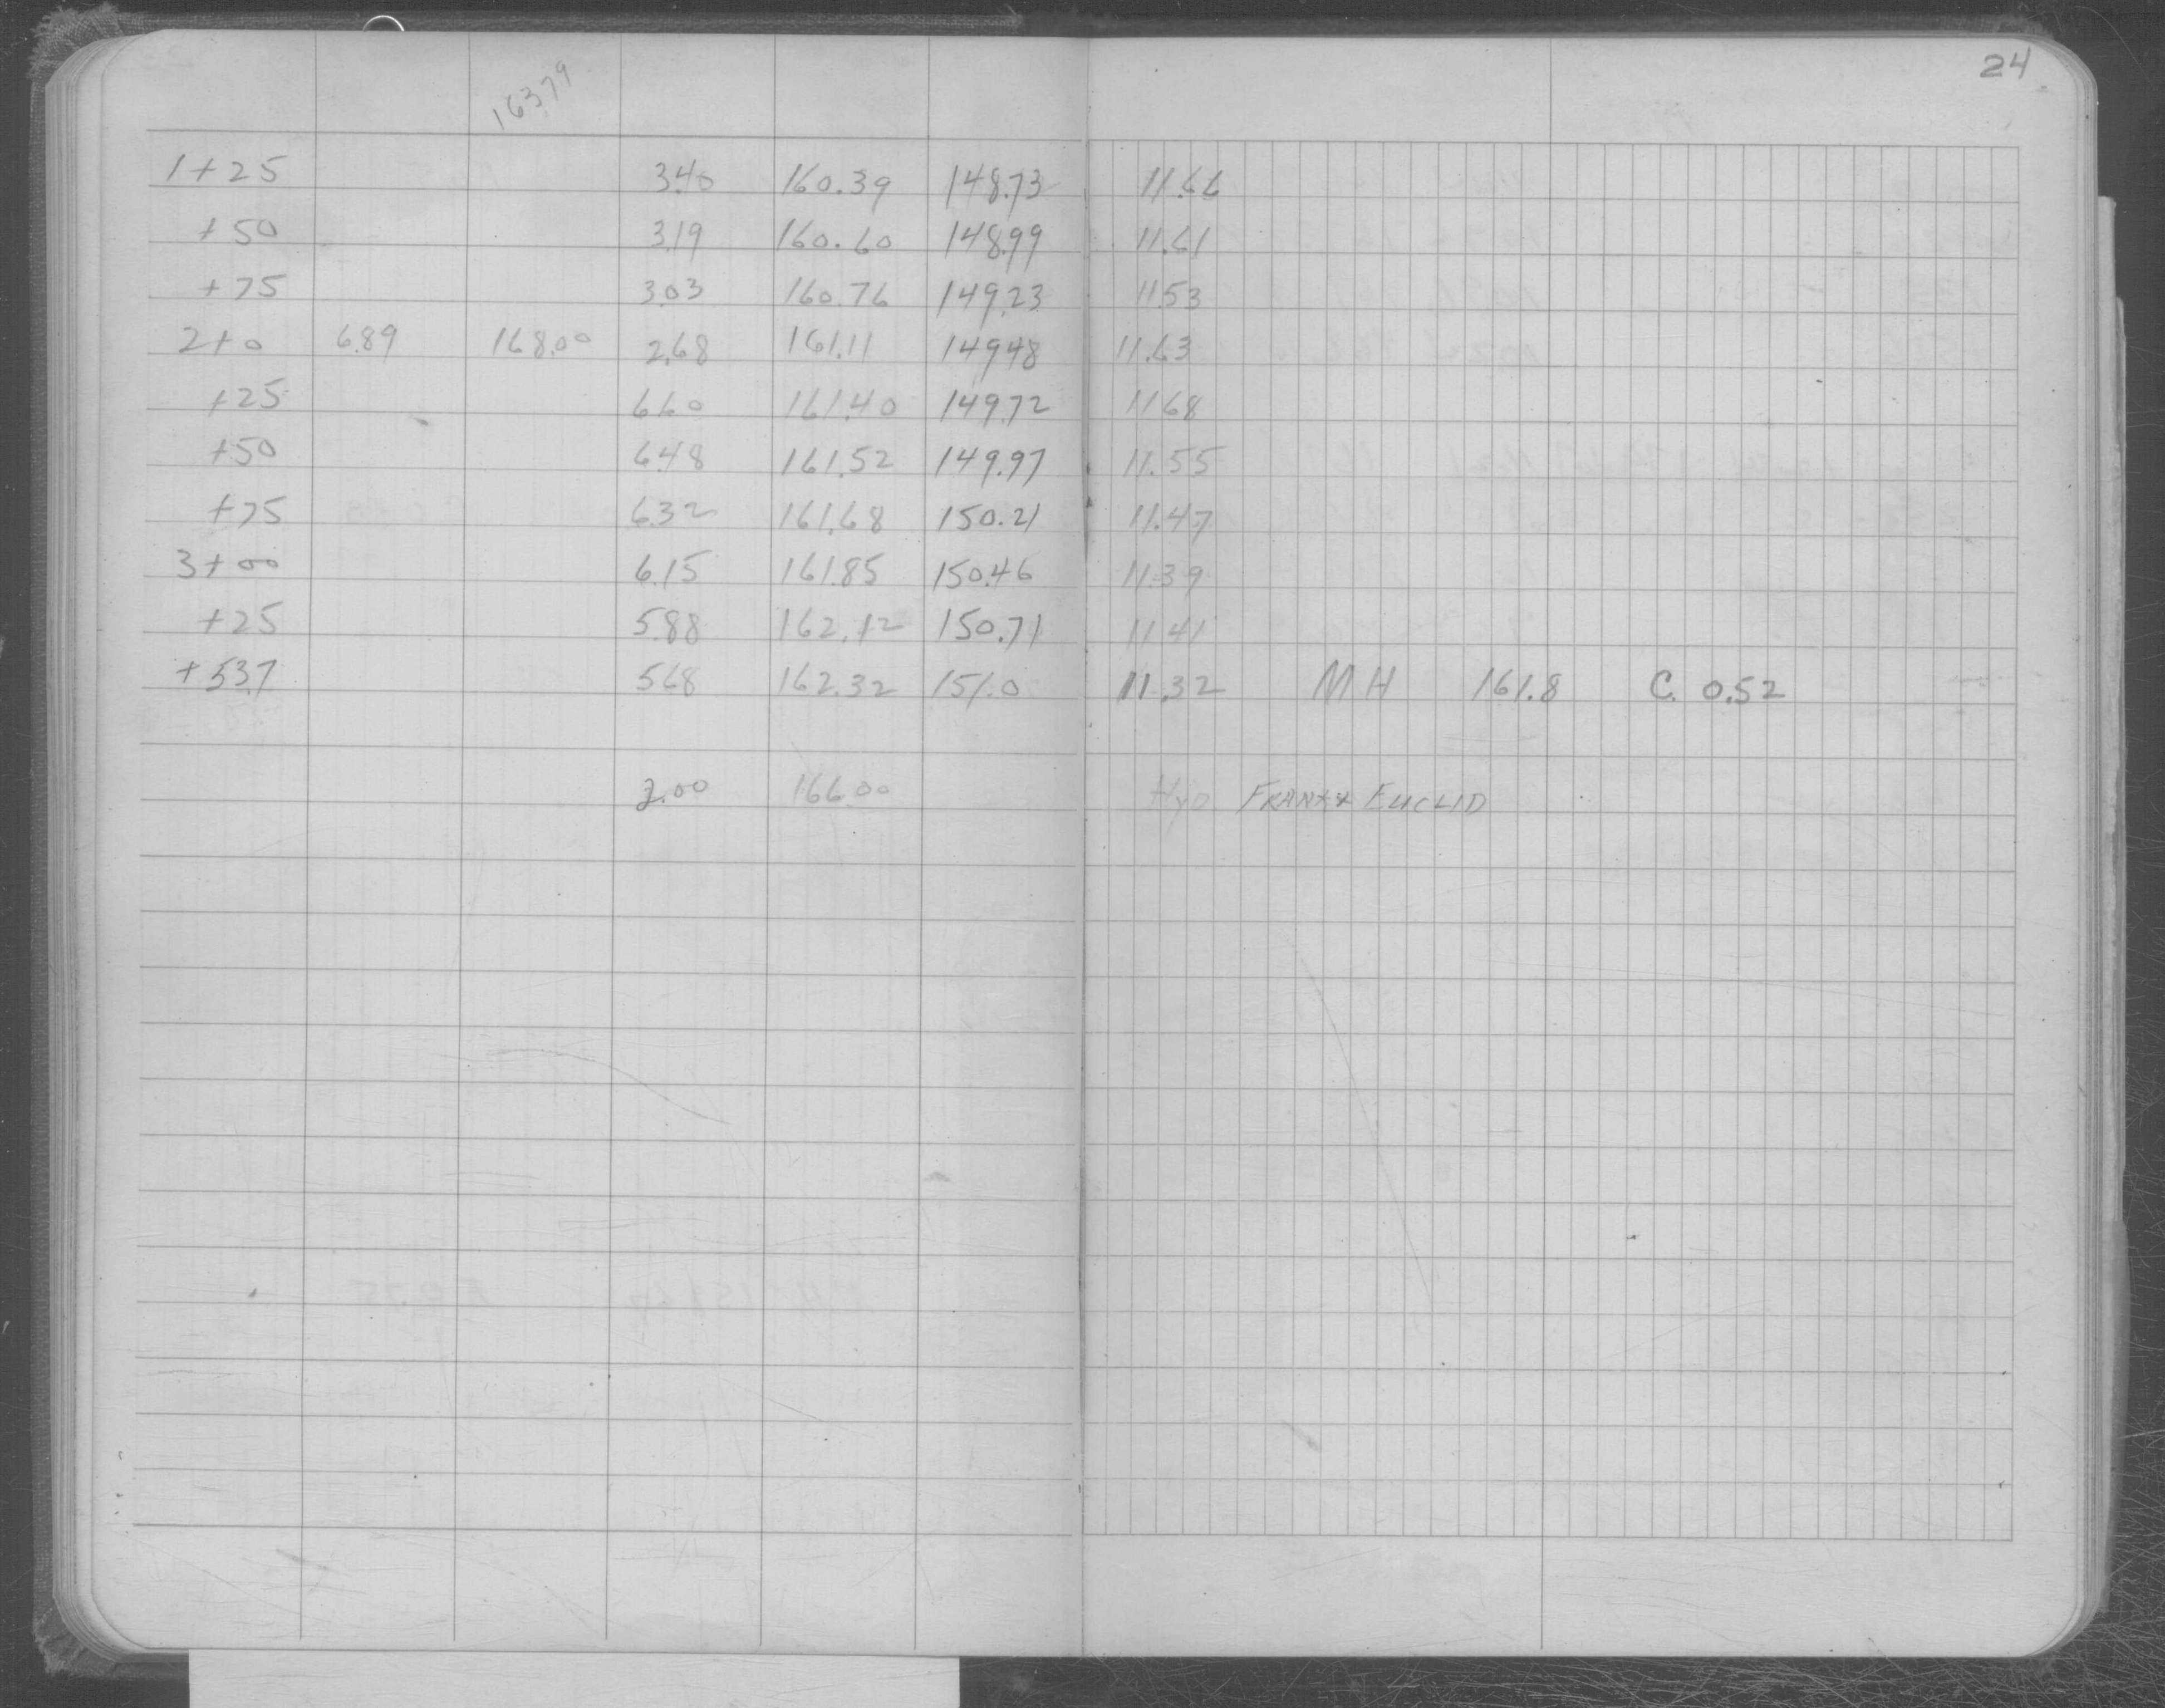 24
163.79
1+25 3.40 160.39 148.73 11.66
+50 3.19 160.60 148.99 11.61
+75 3.03 160.76 149.23 11.53
2+0 6.89 168.00 2.68 161.11 149.48 11.63
+25 6.60 161.40 149.72 11.68
+50 6.48 161.52 149.97 11.55
+75 6.32 161.68 150.21 11.47
3+00 6.15 161.85 150.46 11.39
+25 5.88 162.12 150.71 11.41
+53.7 5.68 162.32 151.0 11.32 MH 161.8 C. 0.52
2.00 166.00 Hyd EUCLID